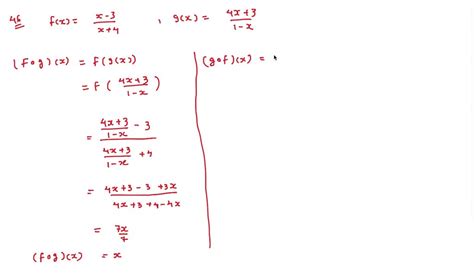 46 f(x) = (x-3)/(x+4) , g(x) = (4x+3)/(1-x)
(fog)(x) = f(g(x))
= f((4x+3)/(1-x))
= ((4x+3)/(1-x) - 3)/((4x+3)/(1-x) + 4)
= (4x+3-3+3x)/(4x+3+4-4x)
= 7x/7
(fog)(x) = x
(gof)(x) =